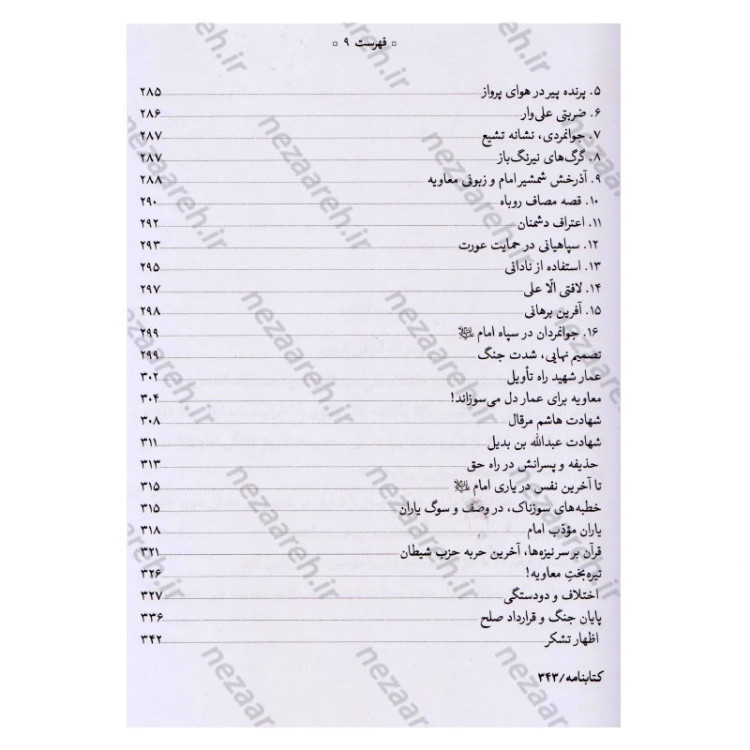 ▫ فهرست ۹ ▫
۵. پرنده پیر در هوای پرواز ۲۸۵
۶. ضربتی علی‌وار ۲۸۶
۷. جوانمردی، نشانه تشیع ۲۸۷
۸. گرگ‌های نیرنگ‌باز ۲۸۷
۹. آذرخش شمشیر امام و زبونی معاویه ۲۸۸
۱۰. قصه مصاف روباه ۲۹۰
۱۱. اعتراف دشمنان ۲۹۲
۱۲. سپاهیانی در حمایت عورت ۲۹۳
۱۳. استفاده از نادانی ۲۹۵
۱۴. لافتی الّا علی ۲۹۷
۱۵. آفرین برهانی ۲۹۸
۱۶. جوانمردان در سپاه امام ۲۹۹
تصمیم نهایی، شدت جنگ ۲۹۹
عمار شهید راه تأویل ۳۰۲
معاویه برای عمار دل می‌سوزاند! ۳۰۴
شهادت هاشم مرقال ۳۰۸
شهادت عبدالله بن بدیل ۳۱۱
حذیفه و پسرانش در راه حق ۳۱۳
تا آخرین نفس در یاری امام ۳۱۵
خطبه‌های سوزناک، در وصف و سوگ یاران ۳۱۵
یاران مؤدّب امام ۳۱۸
قرآن بر سر نیزه‌ها، آخرین حربه حزب شیطان ۳۲۱
تیره‌بختِ معاویه! ۳۲۶
اختلاف و دودستگی ۳۲۷
پایان جنگ و قرارداد صلح ۳۳۶
اظهار تشکر ۳۴۲
کتابنامه/۳۴۳
nezaareh.ir